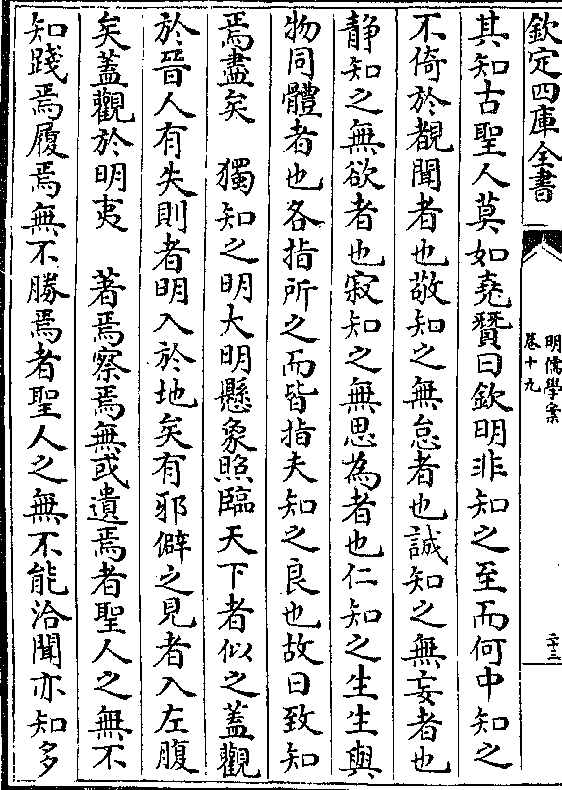 欽定四庫全書
明儒學案
卷十九
二十三
其知古聖人莫如堯贊曰欽明非知之至而何中知之
不倚於覩聞者也敬知之無怠者也誠知之無妄者也
静知之無欲者也寂知之無思為者也仁知之生生與
物同體者也各指所之而皆指夫知之良也故曰致知
焉盡矣　獨知之明大明懸象照臨天下者似之蓋觀
於晉人有失則者明入於地矣有邪僻之見者入左腹
矣蓋觀於明夷　著焉察焉無或遺焉者聖人之無不
知踐焉履焉無不勝焉者聖人之無不能洽聞亦知多